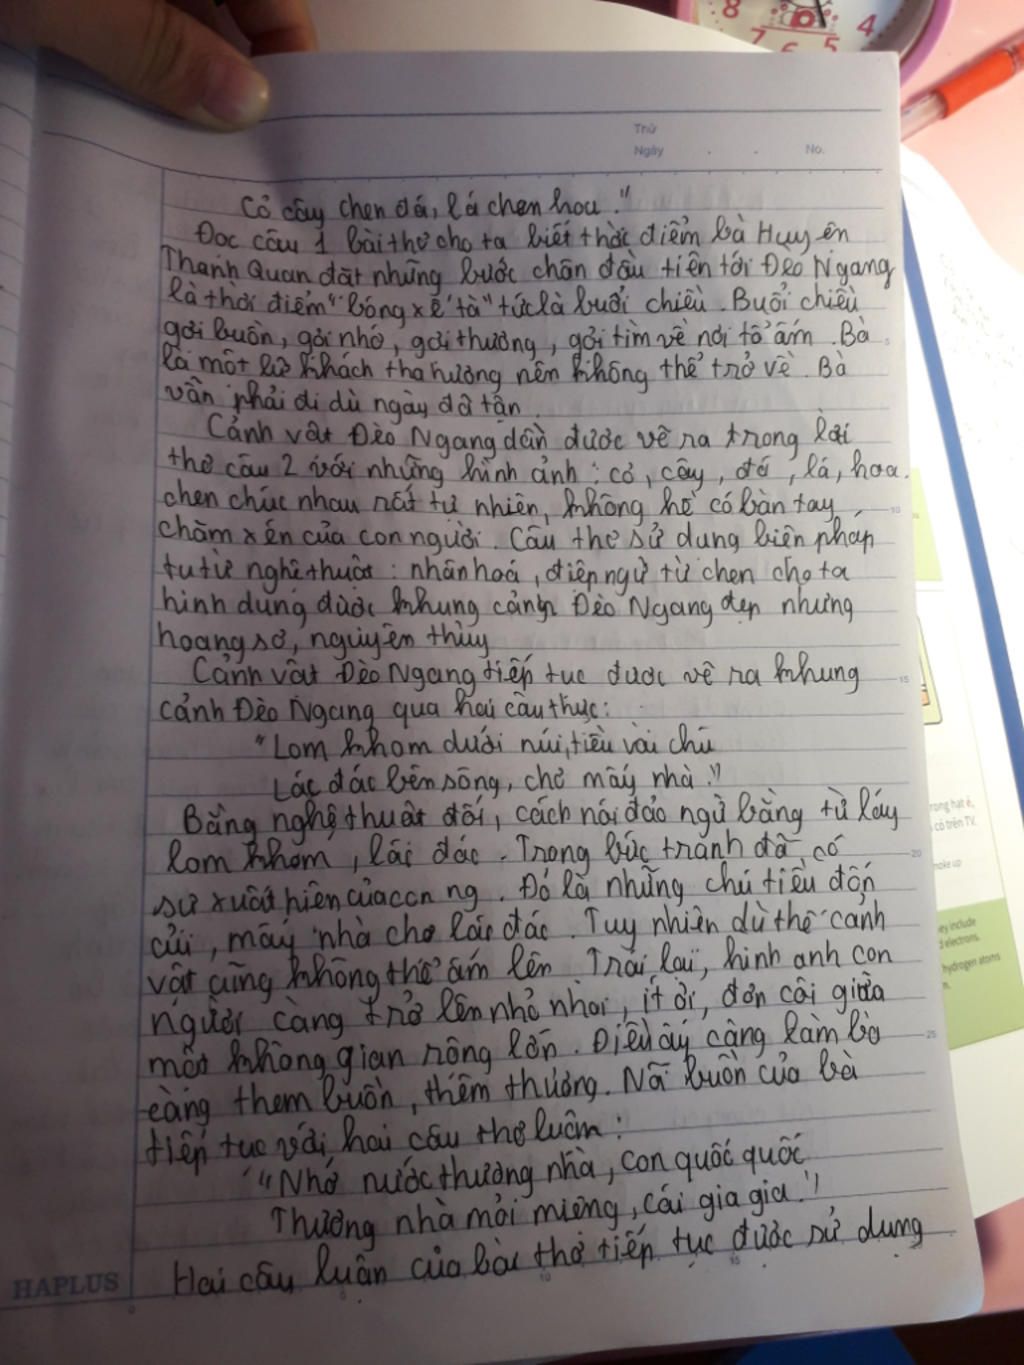 8 7 6 5 4
Thứ
Ngày . . No.
Cỏ cây chen đá, lá chen hoa."
Đọc câu 1 bài thơ cho ta biết thời điểm bà Huyện
Thanh Quan đặt những bước chân đầu tiên tới Đèo Ngang
là thời điểm "bóng xế tà" tức là buổi chiều. Buổi chiều
gợi buồn, gợi nhớ, gợi thương, gợi tìm về nơi tổ ấm. Bà
là một lữ khách tha hương nên không thể trở về. Bà
vẫn phải đi dù ngày đã tận.
Cảnh vật Đèo Ngang dần được vẽ ra trong lời
thơ câu 2 với những hình ảnh: cỏ, cây, đá, lá, hoa.
chen chúc nhau rất tự nhiên, không hề có bàn tay
chăm xén của con người. Câu thơ sử dụng biện pháp
tu từ nghệ thuật: nhân hoá, điệp ngữ từ chen cho ta
hình dung được khung cảnh Đèo Ngang đẹp nhưng
hoang sơ, nguyên thủy
Cảnh vật Đèo Ngang tiếp tục được vẽ ra khung
cảnh Đèo Ngang qua hai câu thực:
"Lom khom dưới núi, tiều vài chú
Lác đác bên sông, chợ mấy nhà."
Bằng nghệ thuật đối, cách nói đảo ngữ bằng từ láy
lom khom, lác đác. Trong bức tranh đã có
sự xuất hiện của con ng. Đó là những chú tiều đốn
củi, mấy nhà chợ lác đác. Tuy nhiên dù thế cảnh
vật cũng không thể ấm lên. Trái lại, hình ảnh con
người càng trở lên nhỏ nhoi, ít ỏi, đơn côi giữa
một không gian rộng lớn. Điều ấy càng làm bà
càng thêm buồn, thêm thương. Nỗi buồn của bà
tiếp tục với hai câu thơ luận:
"Nhớ nước thương nhà, con quốc quốc
Thương nhà mỏi miệng, cái gia gia."
Hai câu luận của bài thơ tiếp tục được sử dụng
HAPLUS
5 10 15 20 25
0 5 10 15
rong hạt é,
có trên TV.
make up
ey include
electrons.
hydrogen atoms